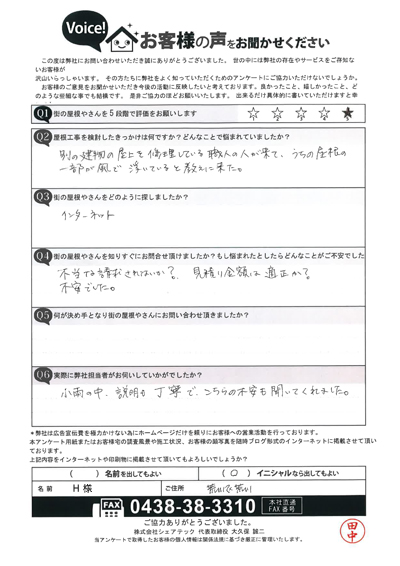 Voice!
お客様の声をお聞かせください
この度は弊社にお問い合わせいただき誠にありがとうございました。世の中には弊社の存在やサービスをご存知ないお客様が
沢山いらっしゃいます。その方たちに弊社をよく知っていただくためのアンケートにご協力いただけないでしょうか。
お客様のご意見をお聞かせいただき今後の活動に反映したいと考えております。良かったこと、嬉しかったこと、ど
のような些細な事でも結構です。是非ご協力のほどお願いいたします。出来るだけ具体的に書いていただけますと幸
Q1 街の屋根やさんを5段階で評価をお願いします
☆ ☆ ☆ ☆ ★
Q2 屋根工事を検討したきっかけは何ですか?どんなことで悩まれていましたか?
別の建物の屋上を修理している職人の人が来て、うちの屋根の
一部が風で浮いていると教えに来た。
Q3 街の屋根やさんをどのように探しましたか?
インターネット
Q4 街の屋根やさんを知りすぐにお問合せ頂けましたか?もし悩まれたとしたらどんなことがご不安でした
不当な請求されないか?、見積り金額は適正か?
不安でした。
Q5 何が決め手となり街の屋根やさんにお問い合わせ頂きましたか?
Q6 実際に弊社担当者がお伺いしていかがでしたか?
小雨の中、説明も丁寧で、こちらの不安も聞いてくれました。
*弊社は広告宣伝費を極力かけない為にホームページだけを頼りにお客様への営業活動を行っております。
本アンケート用紙またはお客様宅の調査風景や施工状況、お客様の顔写真を随時ブログ形式のインターネットに掲載させて頂い
ております。
上記内容をインターネットや印刷物に掲載させて頂いてもよろしいでしょうか?
( )名前を出してもよい ( ○ )イニシャルなら出してもよい
名前 H 様 ご住所
FAX 0438-38-3310 本社直通 FAX番号
ご協力ありがとうございました。
株式会社シェアテック 代表取締役 大久保 誠二
当アンケートで取得したお客様の個人情報は関係法規に基づき厳正に管理いたします。
田中